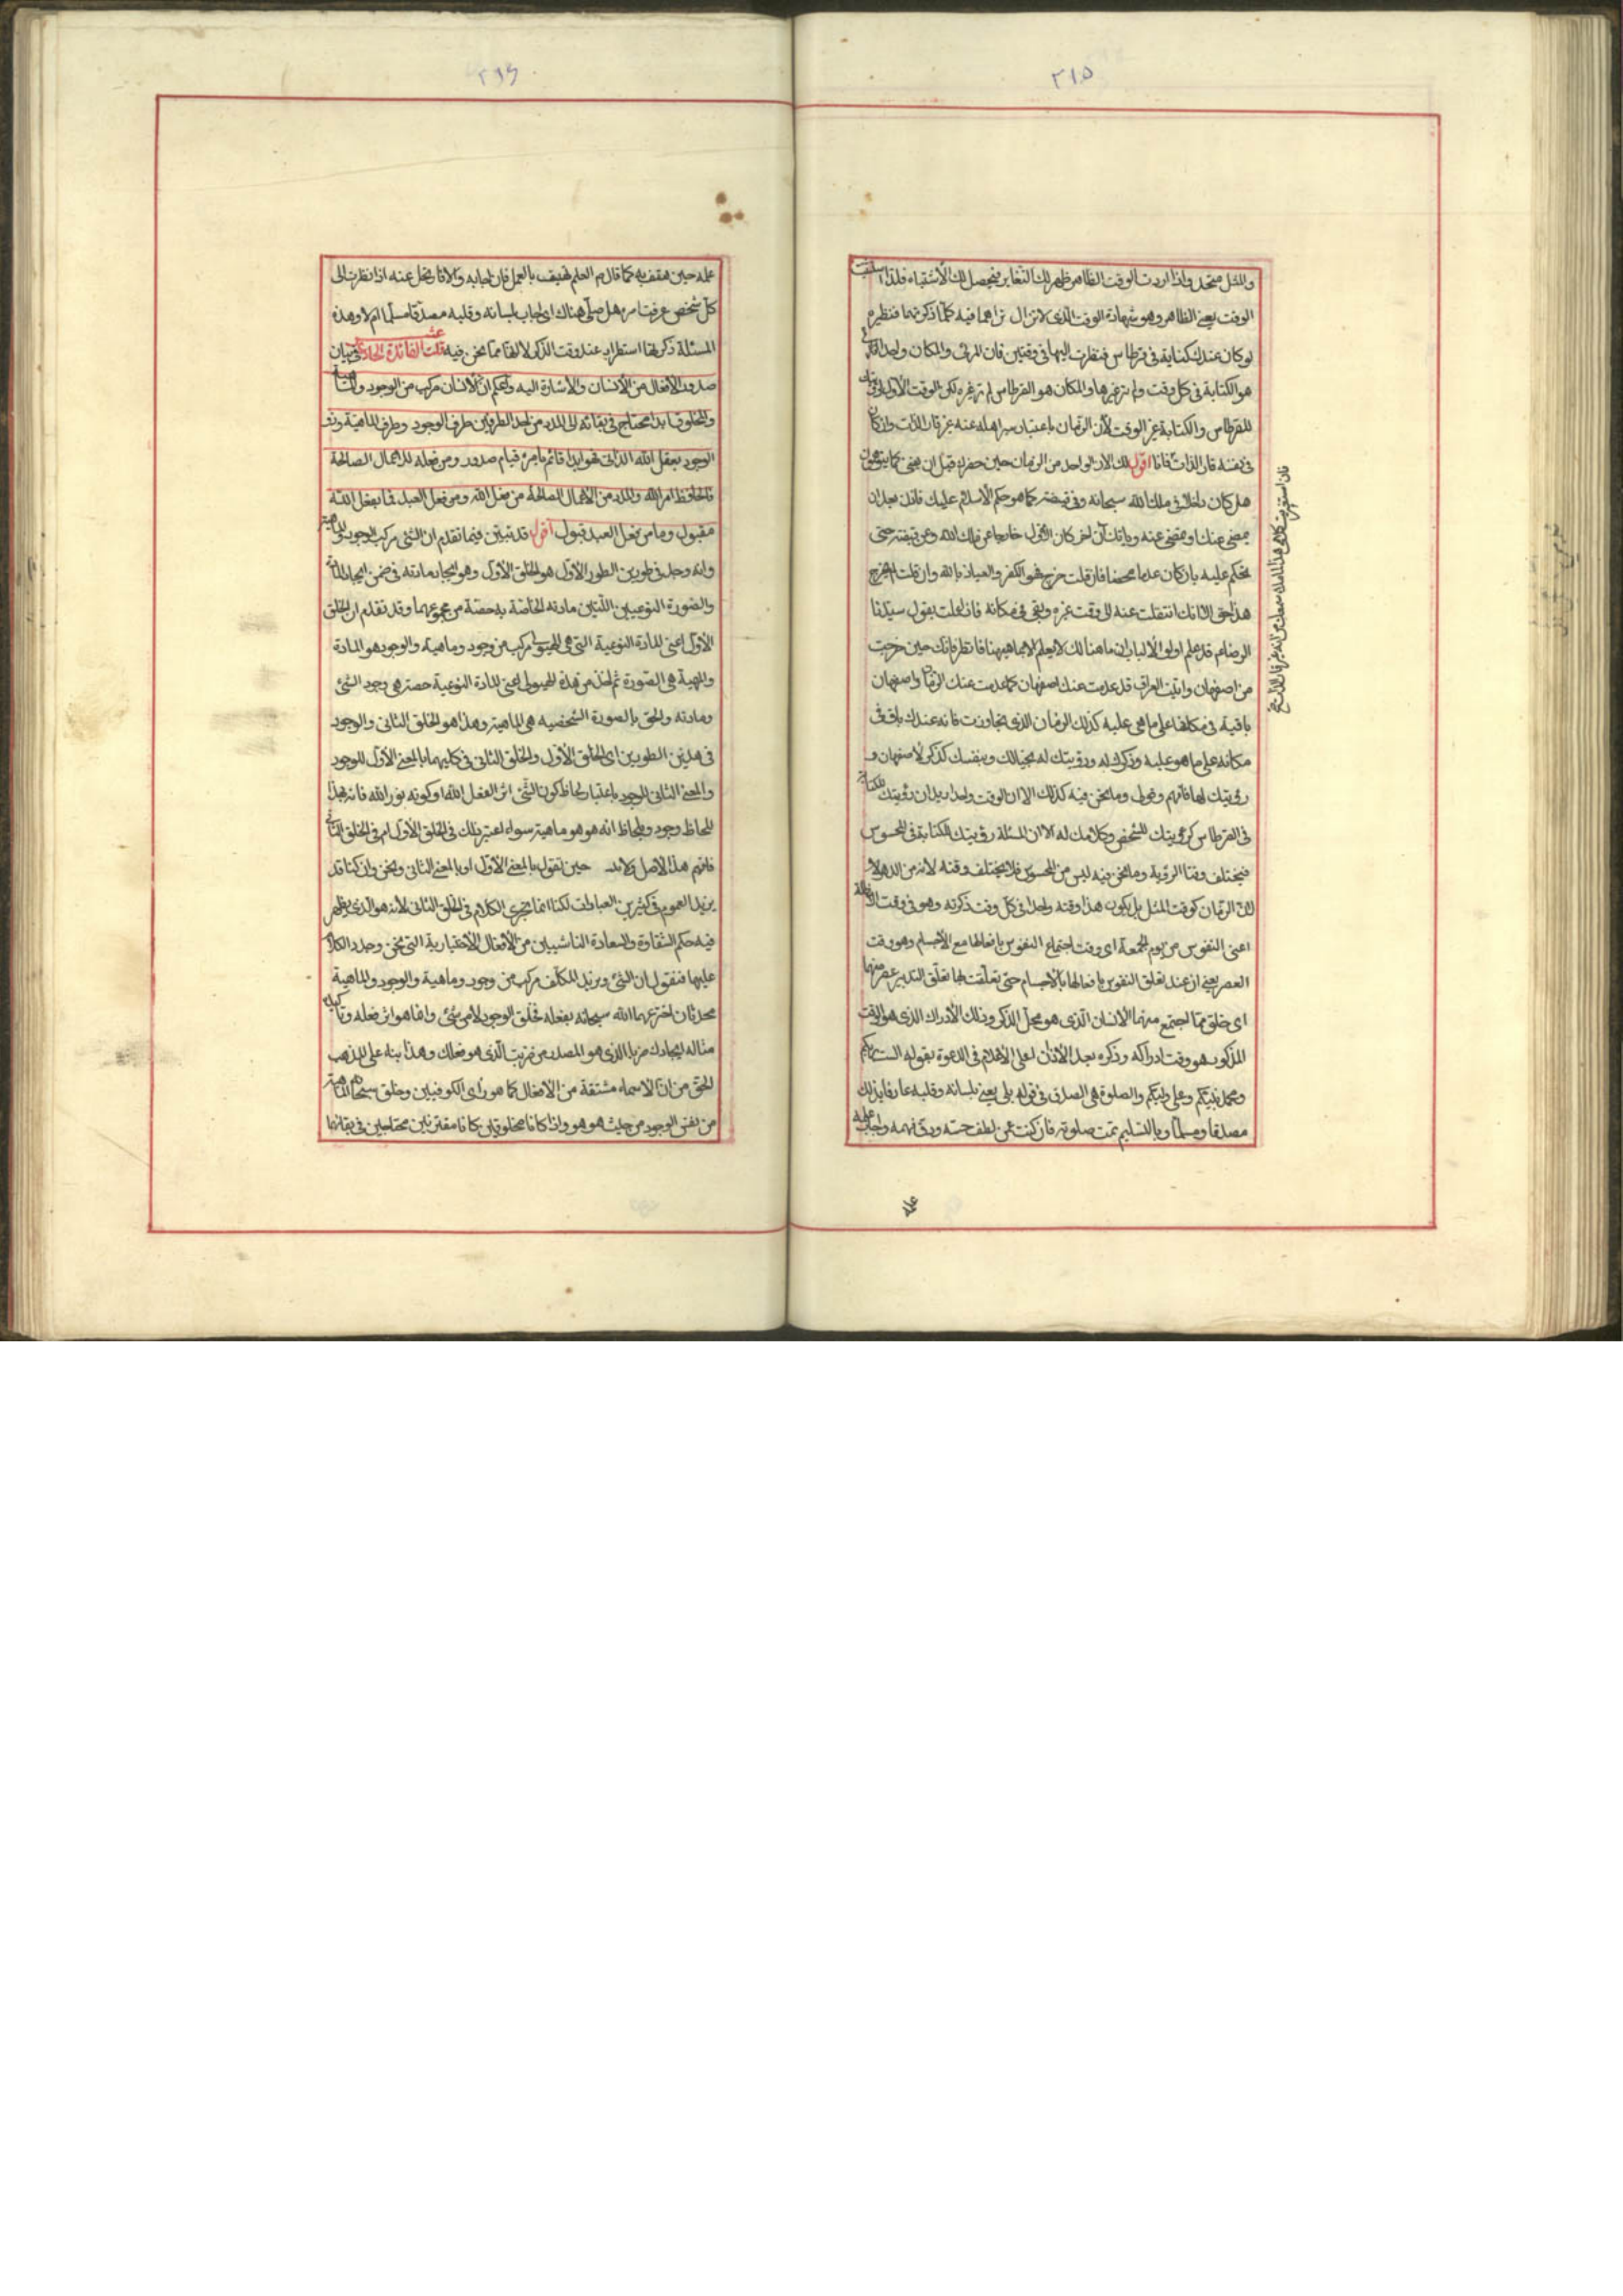 ٢١٥
والمثل متحد واذا اردت الوقت الظاهر ظهر لك التغاير فيحصل لك الاشتباه فلذا
الوقت يعني الظاهر وهو شهادة الوقت الذي لا تزال تراهما فيه كلما ذكرتهما فنظيره
لو كان عندك كتابة في قرطاس فنظرت اليها في وقتين فان المرئي والمكان واحد
هو الكتابة في كل وقت ولم تر غيرها والمكان هو القرطاس لم تر غيره لكن الوقت الاول
للقرطاس والكتابة غير الوقت لأن الزمان باعتبار سيراهله عنه غير قار الذات وان كان
في نفسه قار الذات فانا اقول لك الان الواحد من الزمان حين حضرك قبل ان يمضي كما يتوهمون
هل كان داخلا في ملك الله سبحانه وفي قبضته كما هو حكم الاسلام عليك فانك بعد ان
يمضي عنك او تمضي عنه ويأتك آن اخر كان الأول خارجا عن ملك الله وعن قبضته حتى
تحكم عليه بانه كان عدما محضا فان قلت خرج فهو الكفر والعياذ بالله وان قلت لم يخرج
هذا حق الا انك انتقلت عنه الى وقت غيره وبقى في مكانه فان اخذت بقول سيدنا
الرضاءم قد علم اولوا الألباب ان ما هنالك لا يعلم الا بما هيهنا فانظر فانك حين خرجت
من اصفهان واتيت العراق قد عدمت عنك اصفهان كما عدمت عنك الزمان واصفهان
باقية في مكانها على ما هي عليه كذلك الزمان الذي تجاوزت فانه عندك باق في
مكانه على ما هو عليه وذكرك له ورؤيتك له بخيالك وبنفسك كذكرك لاصفهان و
رؤيتك لها فافهم وقول وما نحن فيه كذلك الا ان الوقت واحد اريد ان رؤيتك للكتابة
في القرطاس كرؤيتك للشخص وكلامك له الا ان المسئلة رؤيتك الكتابة في المحسوس
فيختلف وقتا الرؤية وما نحن فيه ليس من المحسوس فلا يختلف وقته لانه من الدهر لا
لان الزمان كوقت المثل بل يكون هذا وقته واحدا في كل وقت ذكرته وهو في وقت الاظلة
اعني النفوس من يوم الجمعة اي وقت اجتماع النفوس بافعالها مع الاجسام وهو وقت
العصر يعني ان عند تعلق النفوس بافعالها بالاجسام حتى تعلقت بها تعلق التدبير عصر منهما
اي خلق مما اجتمع منهما الانسان الذي هو محل الذكر وذلك الادراك الذي هو الوقت
المذكور هو وقت ادراكه وذكره بعد الأذان اعلى الأعلام في الدعوة بقوله الست بربكم
ومحمد نبيكم وعلي وليكم والصلوة هي الصدق في قوله بلى يعني بلسانه وقلبه عارفا بذلك
مصدقا ومسلما وبالتسليم تمت صلوته فان كنت ممن لطف حسه ودق فهمه واجاب
علمه
٢١۶
علمه حين هتف به كما قال م العلم يهتف بالعمل فان اجابه والا ارتحل عنه اذا نظرت الى
كل شخص عرفت من هل صلى هناك اي اجاب بلسانه وقلبه مصدقا مسلما ام لا وهذه
المسئلة ذكرتها استطرادا عند وقت الذكر لا انها مما نحن فيه قلت الفائدة الحادية عشر في بيان
صدور الأفعال من الأنسان والأشارة اليه واعلم ان الأنسان مركب من الوجود والماهية
والمخلوق ابدا محتاج في بقائه الى المدد من احد الطرفين طرف الوجود وطرف الماهية ونف
الوجود بفعل الله الذاتي فهو ابدا قائم بامره قيام صدور ومن فعله للاعمال الصالحة
فالحافظ امر الله والمدد من الاعمال الصالحة من فعل الله ومن فعل العبد فما بفعل الله
مقبول وما من فعل العبد قبول اقول قد تبين فيما تقدم ان الشئ مركب الوجود والماهية
وانه وجد في طورين الطور الأول هو الخلق الأول وهو ايجاد مادته في ضمن ايجاد المادة
والصورة النوعيين اللتين مادته الخاصة به حصة من مجموعهما وقد تقدم ان الخلق
الأول اعني المادة النوعية التي هي الهيولى مركب من وجود وماهية والوجود هو المادة
والمهية هي الصورة ثم اخذ من هذه الهيولى اعني المادة النوعية حصة هي وجود الشئ
ومادته والحق بالصورة الشخصيه هي الماهية وهذا هو الخلق الثاني والوجود
في هذين الطورين اي الخلق الأول والخلق الثاني في كليهما بالمعنى الأول للوجود
والمعنى الثاني للوجود باعتبار لحاظ كون الشئ اثر الفعل الله او كونه نور الله فانه بهذا
اللحاظ وجود وبلحاظ انه هو هو ماهية سواء اعتبر ذلك في الخلق الأول ام في الخلق الثاني
فافهم هذا الأصل ولا بد حين نقول بالمعنى الأول او بالمعنى الثاني ونحن وان كنا قد
نريد العموم في كثير من العبارات لكنا انما نجري الكلام في الخلق الثاني لأنه هو الذي يظهر
فيه حكم الشقاوة والسعادة الناشيين من الأفعال الأختيارية التي نحن وحدد الكلام
عليها فنقول ان الشئ ونريد المكلف مركب من وجود وماهية والوجود والماهية
محدثان اخترعهما الله سبحانه بفعله فخلق الوجود لا من شئ وانما هو اثر فعله وتأكيده
مثاله ايجادك ضربا الذي هو المصدر من ضربت الذي هو فعلك وهذا بناء على المذهب
الحق من ان الأسماء مشتقة من الأفعال كما هو راي الكوفيين وخلق سبحانه الماهية
من نفس الوجود من حيث هو هو واذا كانا مخلوقين كانا مفترنين محتاجين في بقائهما